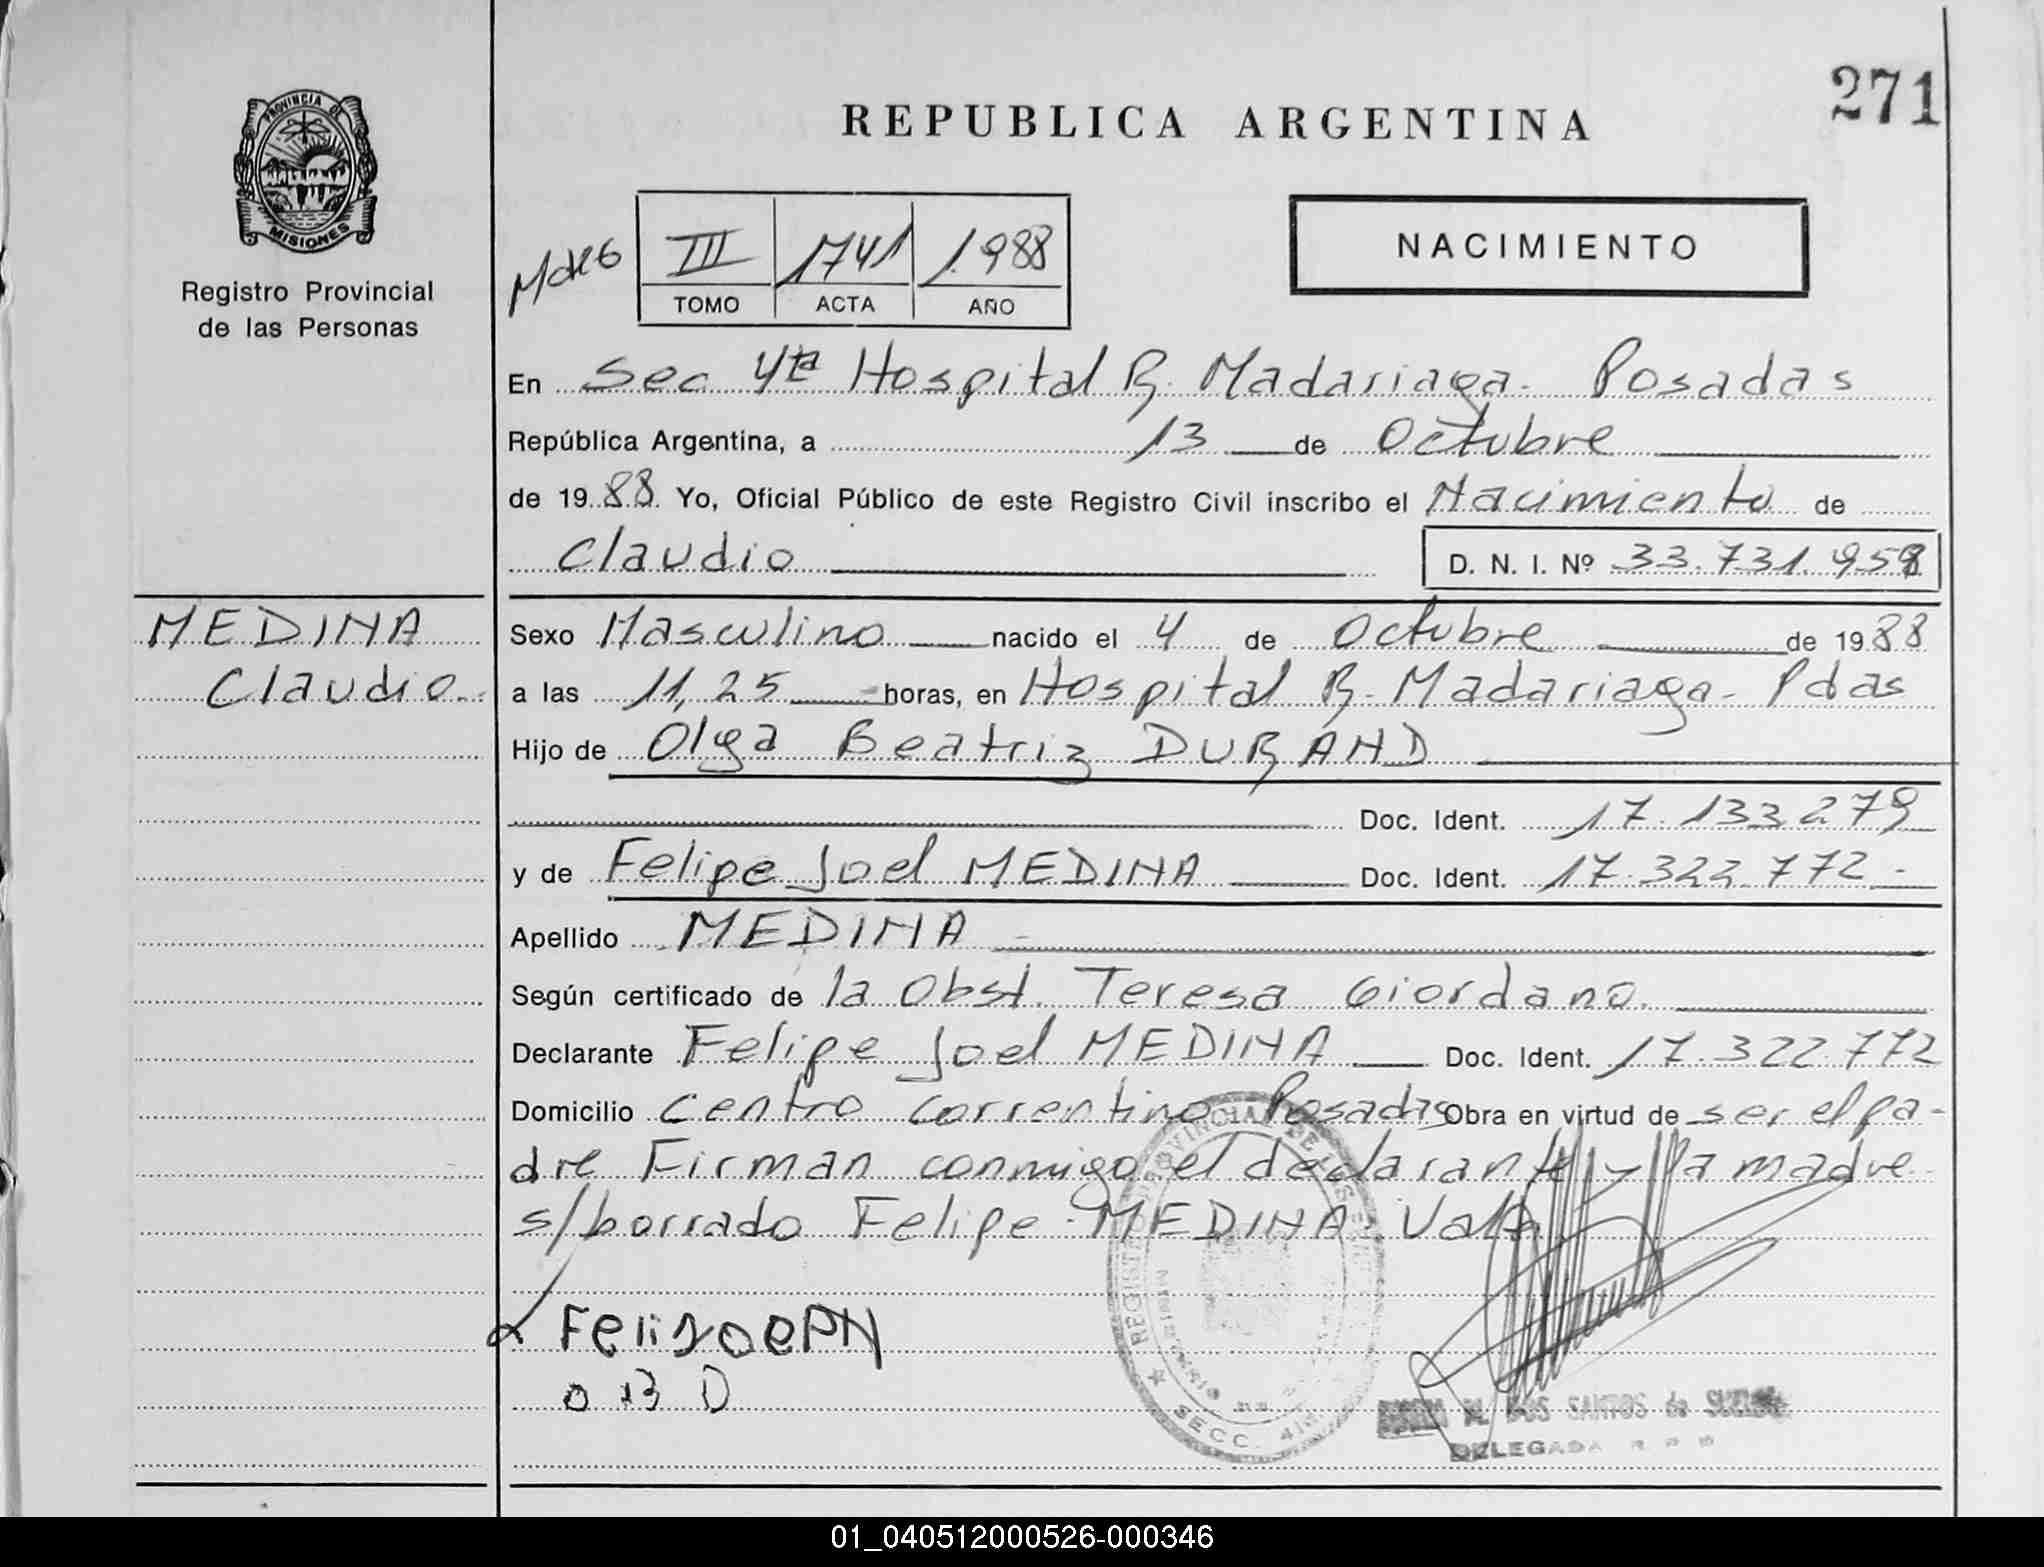 271
REPUBLICA ARGENTINA
PROVINCIA DE
MISIONES
Registro Provincial
de las Personas
III 1741 1.988
TOMO ACTA AÑO
NACIMIENTO
En Sec 4ta Hospital R. Madariaga. Posadas
República Argentina, a 13 de Octubre
de 1988 Yo, Oficial Público de este Registro Civil inscribo el Nacimiento de
Claudio D. N. I. Nº 33.731.958
MEDINA
Claudio.
Sexo Masculino nacido el 4 de Octubre de 1988
a las 11,25 horas, en Hospital R. Madariaga - Pdas
Hijo de Olga Beatriz DURAND
Doc. Ident. 17.133.279
y de Felipe Joel MEDINA Doc. Ident. 17.322.772.-
Apellido MEDINA
Según certificado de la Obst. Teresa Giordano.
Declarante Felipe Joel MEDINA Doc. Ident. 17.322.772
Domicilio Centro Correntino Posadas Obra en virtud de ser el pa-
dre Firman conmigo el declarante y la madre
s/borrado Felipe - MEDINA. Vale
REGISTRO PROVINCIAL DE LAS
SECC. 4ta
DOS SANTOS de
DELEGADA R P P
01_040512000526-000346